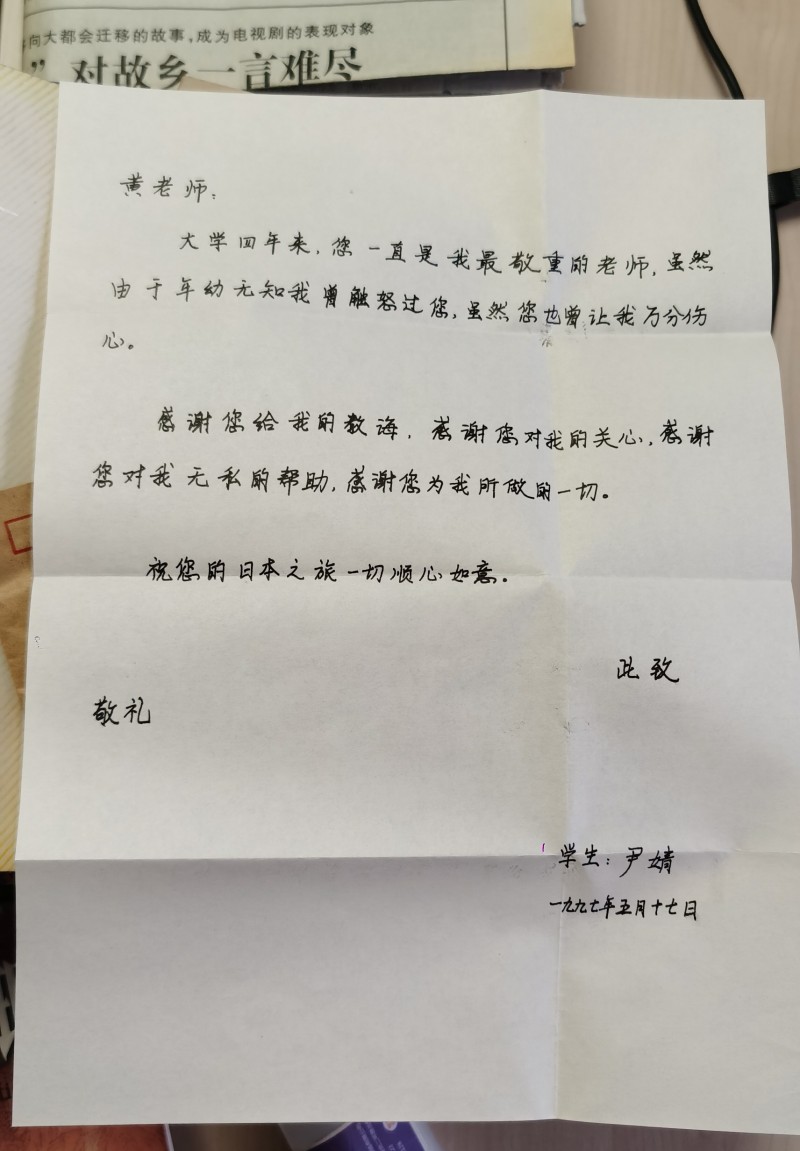 向大都会迁移的故事,成为电视剧的表现对象
”对故乡一言难尽
黄老师:
大学四年来,您一直是我最敬重的老师,虽然
由于年幼无知我曾触怒过您,虽然您也曾让我万分伤
心。
感谢您给我的教诲,感谢您对我的关心,感谢
您对我无私的帮助,感谢您为我所做的一切。
祝您的日本之旅一切顺心如意。
此致
敬礼
学生:尹婧
一九九七年五月十七日